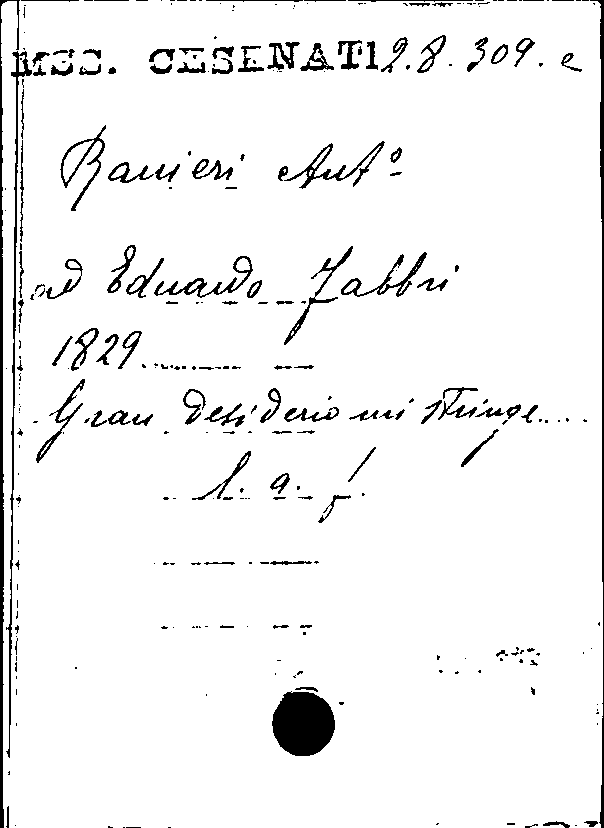 MSS. CESENATI 2.8.309.e
Ranieri Antº
ad Eduardo Fabbri
1829
Gran desiderio mi stringe....
l. a. f.